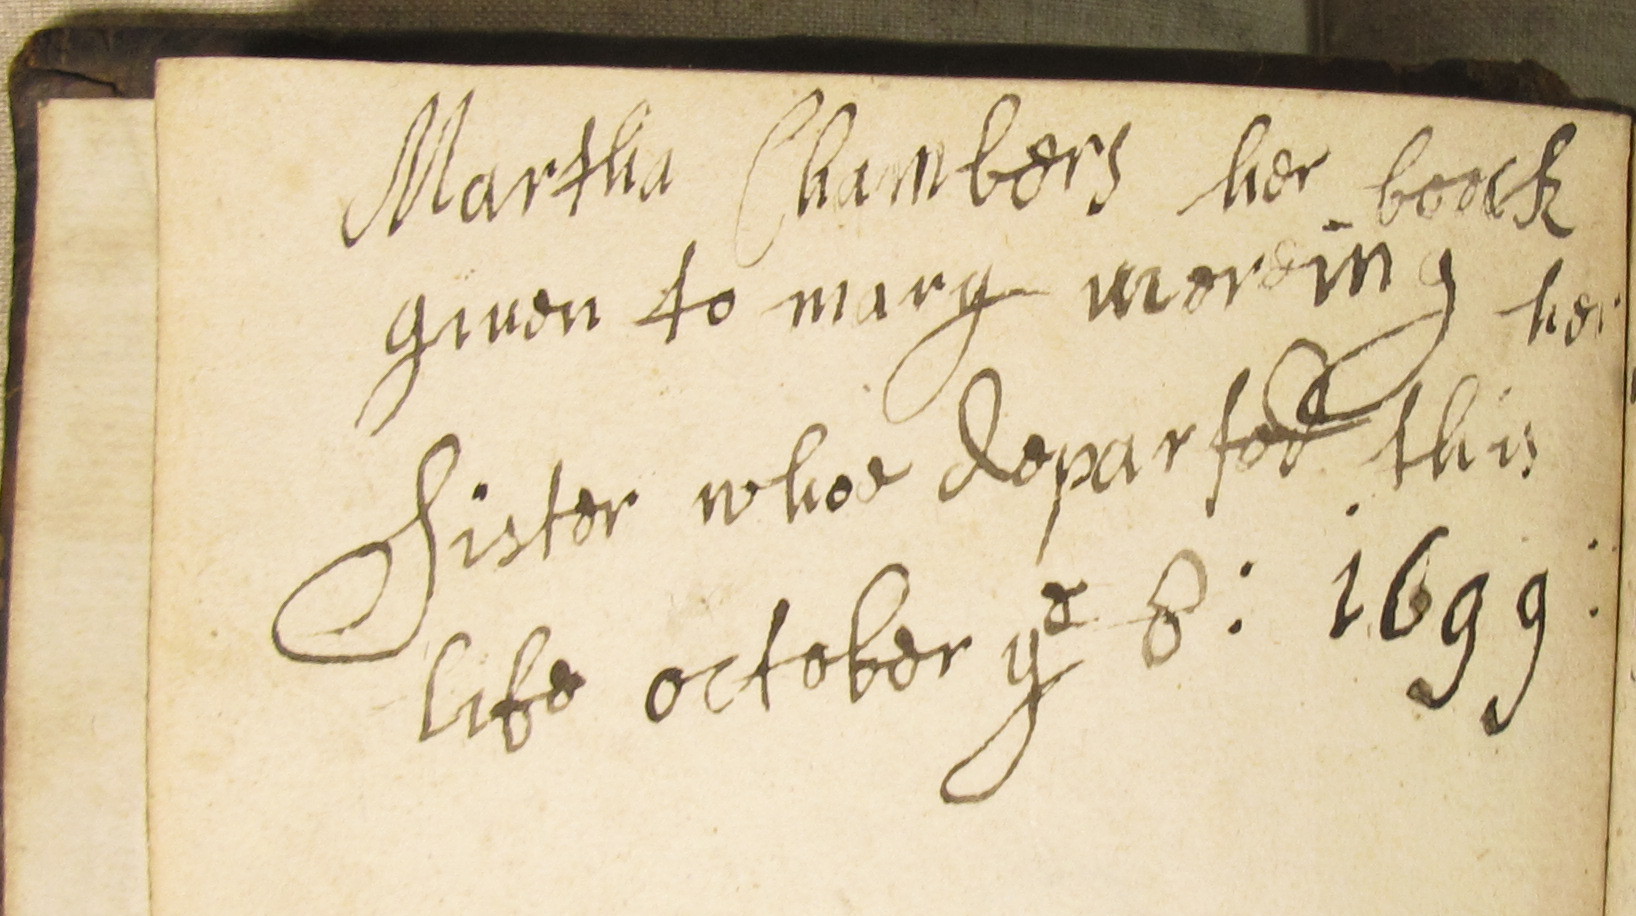 Martha Chambers her boock
given to mary wereing her
Sister whoe departed this
life october yᵉ 8: 1699: